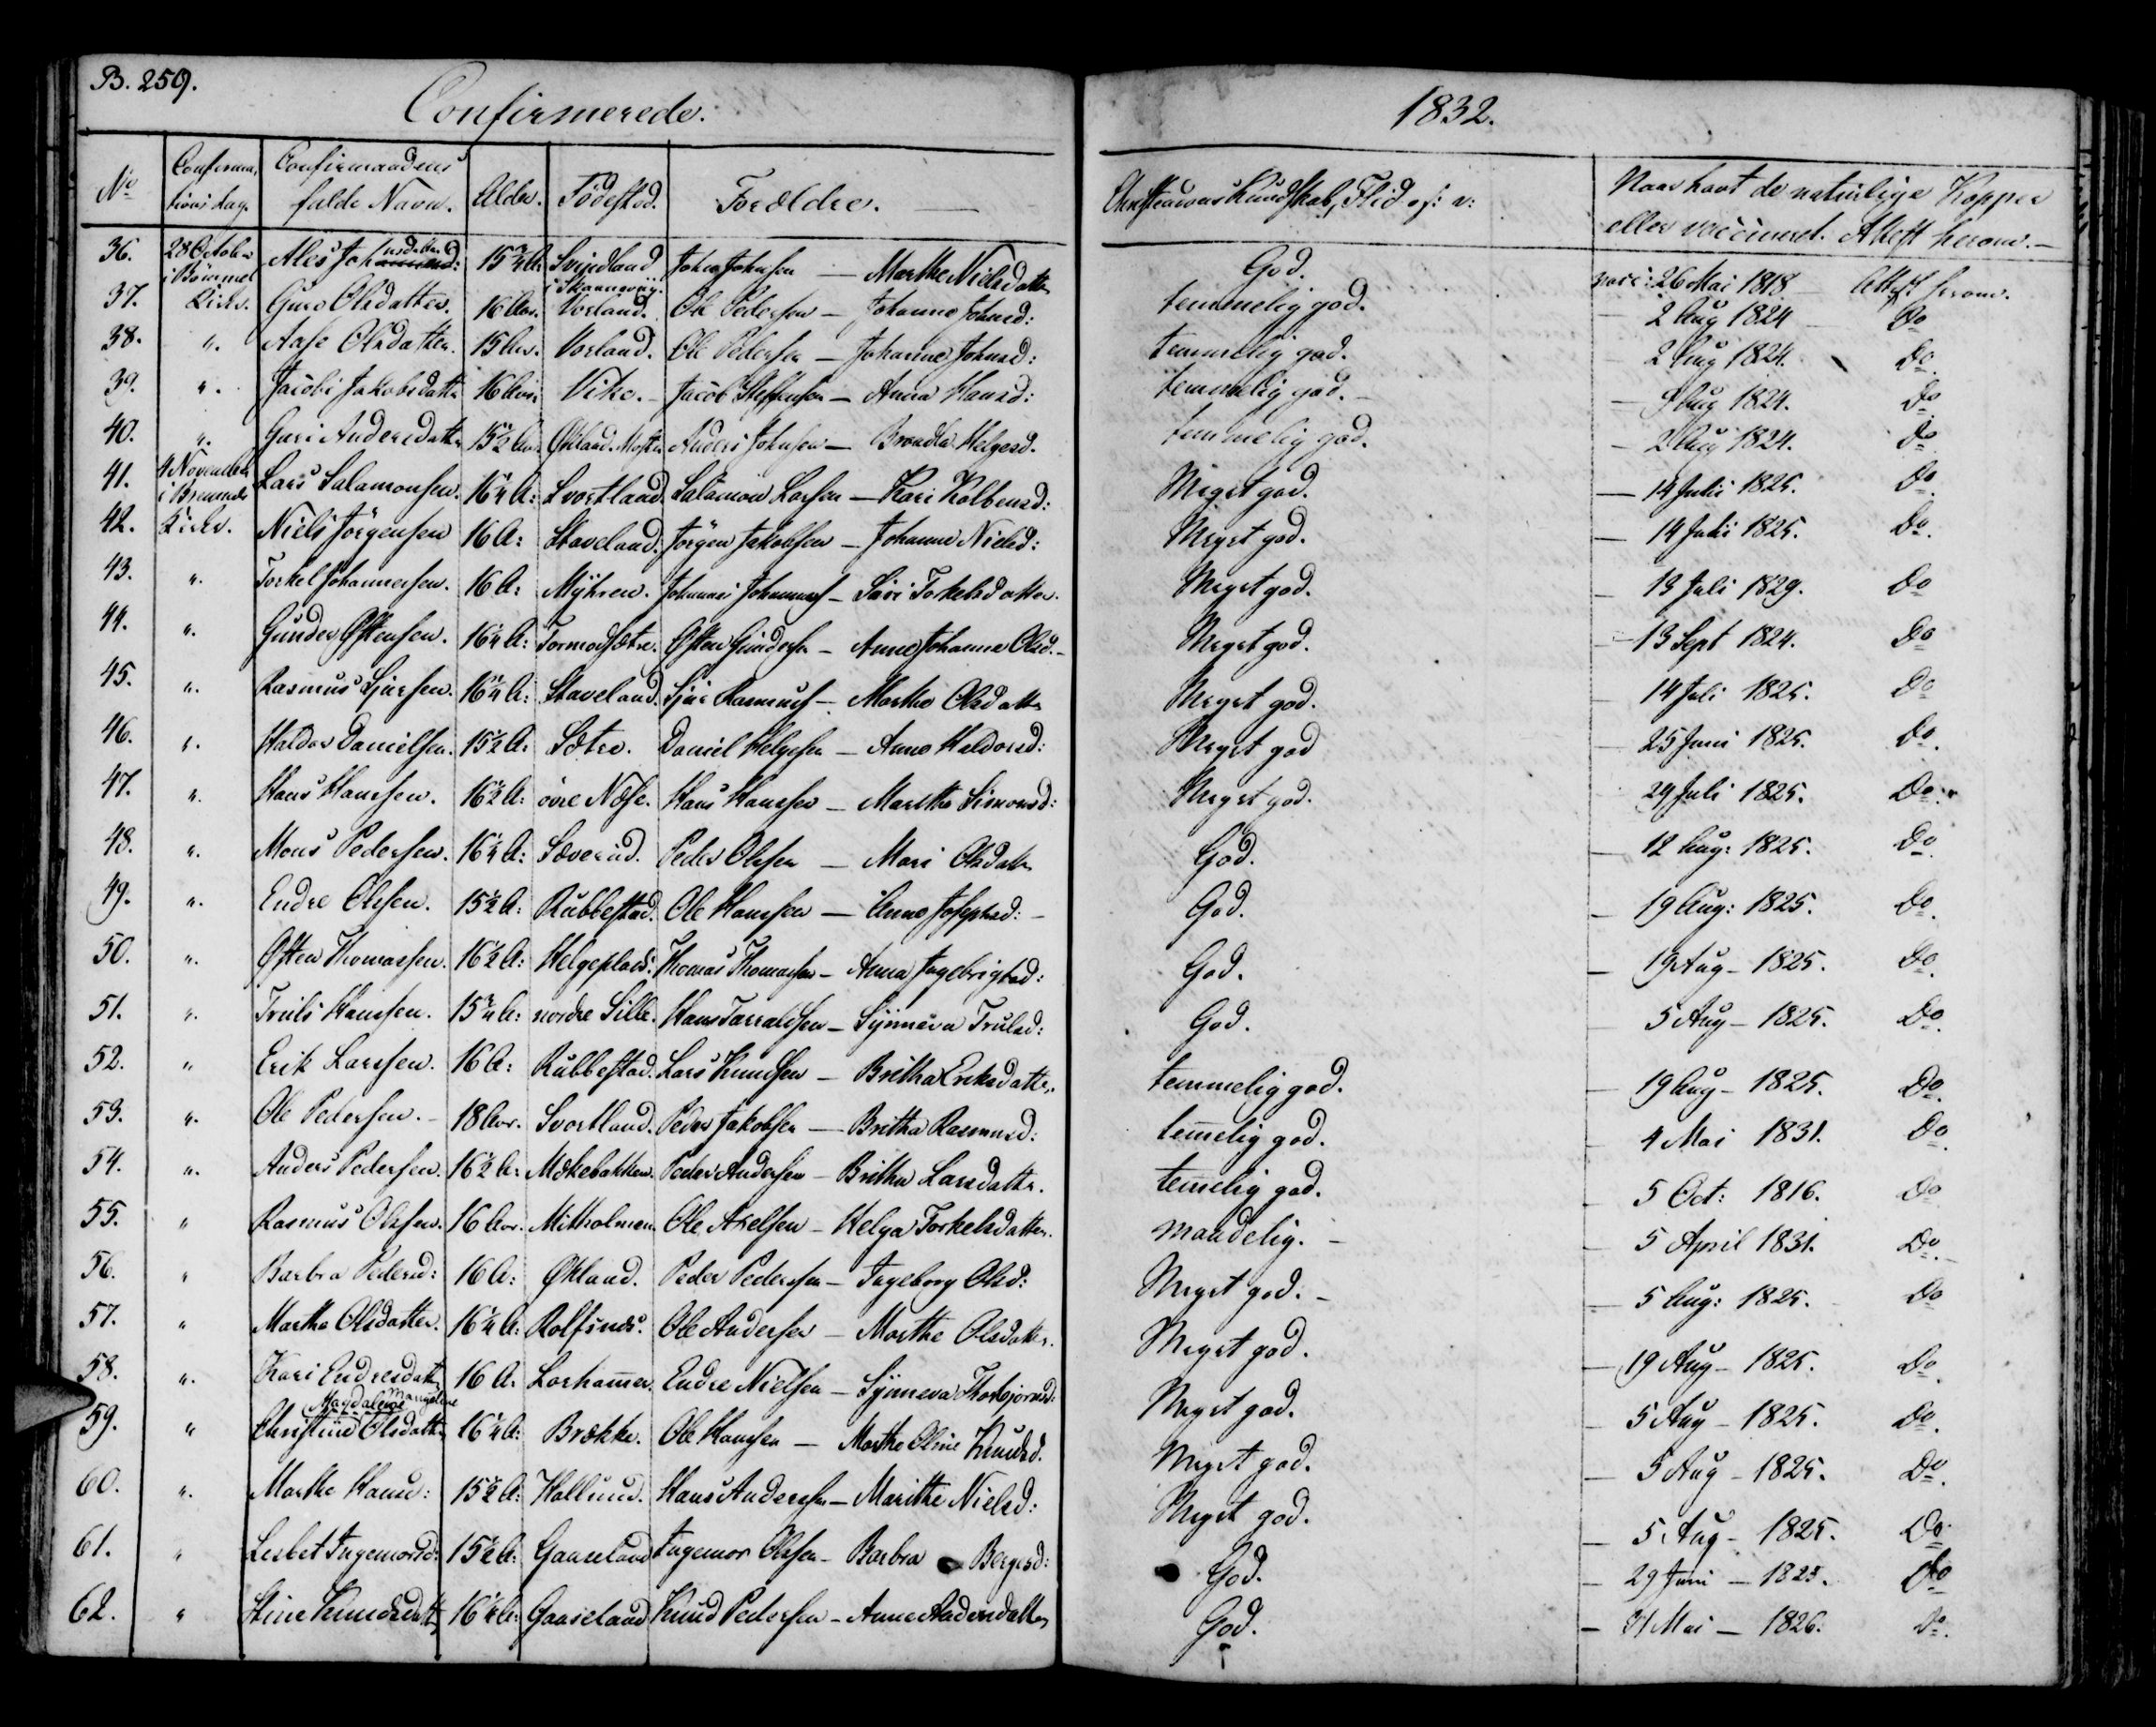 B. 259.
Confirmerede.
1832.
No Confirma,tions dag. Confirmandens fulde Navn. Alder. Födested. Forældre. Christendoms Kundskab, Flid osv: Naar havt de naturlige Kopper eller vaccineret. Attest herom.
36. 28 October i Bömmel Ales Johnsdatter 15¾ A. Svejedland i Skaanevig. John Johnsen — Marthe Nielsdatter God. vacc: 26 Mai 1818 Attest herom.
37. Kirke. Guro Olsdatter. 16 Aar. Vorland. Ole Pedersen — Johanne Johnsd: temmelig god. — 2 Aug 1824 Do
38. ". Aase Olsdatter. 15 Aar. Vorland. Ole Pedersen — Johanne Johnsd: temmelig god. 2 Aug 1824. Do.
39. ". Jacobi Jakobsdatter 16 Aar. Vike. Jacob Steffensen — Anna Hansd: temmelig god. — Aug 1824. Do
40. ". Guri Andersdatter 15½ Aar. Økland. Moster Anders Johnsen — Brandla Helgesd. temmelig god. — 2 Aug 1824. Do
41. 4 November i Bremnes Lars Salamonsen. 16¼ A: Svortland. Salamon Larsen — Kari Kolbensd: Meget god. — 14 Juli 1825. Do.
42. Kirke. Niels Jörgensen 16 A: Staveland. Jörgen Jakobsen — Johanna Nielsd: Meget god. — 14 Juli 1825. Do.
43. ". Torkel Johannessen. 16 A: Mÿhren. Johannes Johanness — Siri Torkelsdatter. Meget god. — 13 Juli 1829. Do
44. ". Gunder Østensen. 16¼ A: Tormodsætre. Østen Gundersen — Anne Johanna Olsd. Meget god. — 13 Sept 1824. Do
45. ". Rasmus Sjursen. 16¼ A: Staveland. Sjur Rasmuss — Martha Olsdatter Meget god. — 14 Juli 1825. Do
46. ". Haldor Danielsen. 15½ A: Sætre. Daniel Helgesen — Anna Haldorsd: Meget god — 25 Juni 1825. Do.
47. ". Hans Hansen. 16½ A: övre Næse. Hans Hansen — Maritha Simonsd: Meget god. — 29 Juli 1825. Do.
48. ". Mons Pedersen. 16¼ A: Sæverud. Peder Olsen — Mari Olsdatter God. — 12 Aug: 1825. Do.
49. ". Endre Olsen. 15½ A: Rubbestad. Ole Hansen — Anna Josephsd: God. — 19 Aug: 1825. Do.
50. ". Østen Thomassen. 16½ A: Helgeplads. Thomas Thomassen — Anna Ingebrigtsd: God. — 19 Aug — 1825. Do
51. ". Truls Hansen. 15¾ A: nordre Sille. Hans Taraldsen — Sÿnneva Trulsd: God. — 5 Aug — 1825. Do.
52. " Erik Larsen. 16 A: Rubbestad. Lars Knudsen — Britha Eriksdatter. temmelig god. — 19 Aug — 1825. Do.
53. ". Ole Pedersen. 18 Aar. Svortland. Peder Jakobsen — Britha Rasmusd: tem̄elig god. — 4 Mai 1831. Do.
54. ". Anders Pedersen. 16½ A: Mækebakken. Peder Andersen — Britha Larsdatter. tem̄elig god. — 5 Oct: 1816. Do
55. " Rasmus Olsen. 16 Aar. Mitholmen. Ole Axelsen — Helga Torkelsdatter. maadelig. — 5 April 1831. Do.
56. " Barbra Pedersd: 16 A: Økland. Peder Pedersen — Ingeborg Olsd: Meget god. — 5 Aug: 1825. Do
57. " Martha Olsdatter. 16¼ A: Rolfsnæs. Ole Andersen — Marthe Olsdatter. Meget god. — 19 Aug — 1825. Do.
58. ". Kari Endresdatter 16 A: Lorham̄er. Endre Nielsen — Sÿnneva Thorbjörnsd: Meget god. — 5 Aug — 1825. Do.
Magdalene Mangelene
59. " Christine Olsdatter 16¼ A: Brække. Ole Hansen — Marthe Oline Knudsd. Meget god. — 5 Aug — 1825. Do.
60. ". Marthe Hansd: 15½ A: Hallund. Hans Andersen — Marithe Nielsd: Meget god. — 5 Aug — 1825. Do
61. " Lisbet Ingemorsd: 15½ A: Gaaseland Ingemor Olsen — Barbra Bergesd: God. — 29 Juni — 1825. Do
62. " Stine Knudsdatter 16¼ A: Gaaseland Knud Pedersen — Anne Andersdatter God. — 31 Mai — 1826. Do.